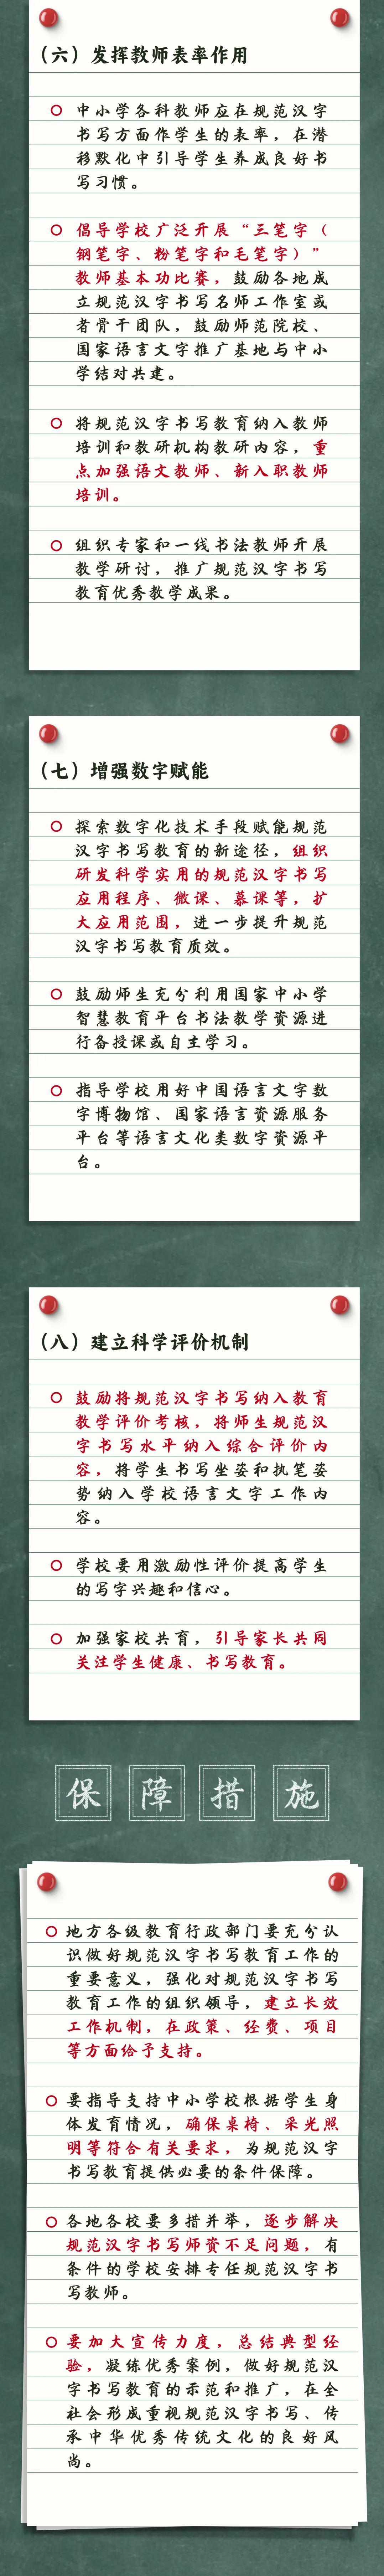 （六）发挥教师表率作用
中小学各科教师应在规范汉字
书写方面作学生的表率，在潜
移默化中引导学生养成良好书
写习惯。
倡导学校广泛开展“三笔字（
钢笔字、粉笔字和毛笔字）”
教师基本功比赛，鼓励各地成
立规范汉字书写名师工作室或
者骨干团队，鼓励师范院校、
国家语言文字推广基地与中小
学结对共建。
将规范汉字书写教育纳入教师
培训和教研机构教研内容，重
点加强语文教师、新入职教师
培训。
组织专家和一线书法教师开展
教学研讨，推广规范汉字书写
教育优秀教学成果。
（七）增强数字赋能
探索数字化技术手段赋能规范
汉字书写教育的新途径，组织
研发科学实用的规范汉字书写
应用程序、微课、慕课等，扩
大应用范围，进一步提升规范
汉字书写教育质效。
鼓励师生充分利用国家中小学
智慧教育平台书法教学资源进
行备授课或自主学习。
指导学校用好中国语言文字数
字博物馆、国家语言资源服务
平台等语言文化类数字资源平
台。
（八）建立科学评价机制
鼓励将规范汉字书写纳入教育
教学评价考核，将师生规范汉
字书写水平纳入综合评价内
容，将学生书写坐姿和执笔姿
势纳入学校语言文字工作内
容。
学校要用激励性评价提高学生
的写字兴趣和信心。
加强家校共育，引导家长共同
关注学生健康、书写教育。
保障措施
地方各级教育行政部门要充分认
识做好规范汉字书写教育工作的
重要意义，强化对规范汉字书写
教育工作的组织领导，建立长效
工作机制，在政策、经费、项目
等方面给予支持。
要指导支持中小学校根据学生身
体发育情况，确保桌椅、采光照
明等符合有关要求，为规范汉字
书写教育提供必要的条件保障。
各地各校要多措并举，逐步解决
规范汉字书写师资不足问题，有
条件的学校安排专任规范汉字书
写教师。
要加大宣传力度，总结典型经
验，凝练优秀案例，做好规范汉
字书写教育的示范和推广，在全
社会形成重视规范汉字书写、传
承中华优秀传统文化的良好风
尚。